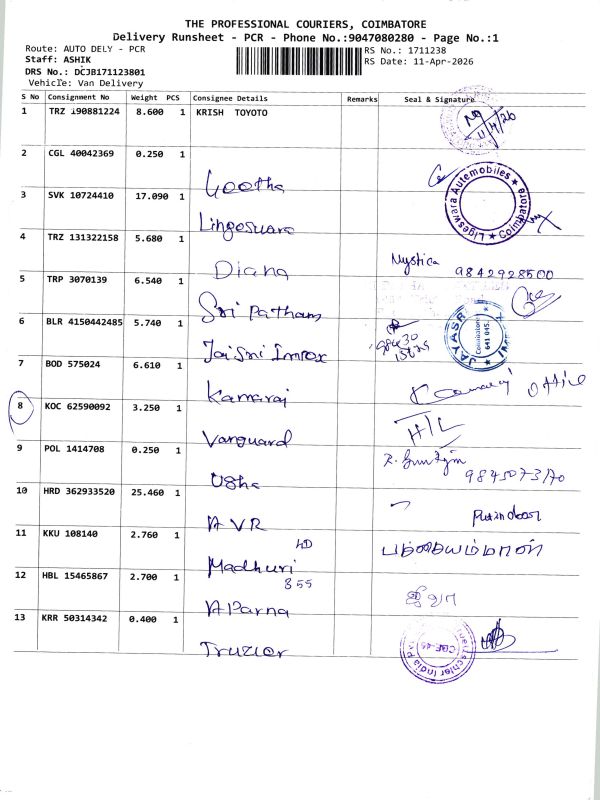 THE PROFESSIONAL COURIERS, COIMBATORE
Delivery Runsheet - PCR - Phone No.:9047080280 - Page No.:1
Route: AUTO DELY - PCR
RS No.: 1711238
Staff: ASHIK
RS Date: 11-Apr-2026
DRS No.: DCJB171123801
Vehicle: Van Delivery
S No Consignment No Weight PCS Consignee Details Remarks Seal & Signature
1 TRZ 190881224 8.600 1 KRISH TOYOTO
11/4/26
2 CGL 40042369 0.250 1
Geetha
Ligeswara Automobiles Coimbatore
3 SVK 10724410 17.090 1
Lingeswara
4 TRZ 131322158 5.680 1
Diana Mystica 9842928500
5 TRP 3070139 6.540 1
Sri Patham
6 BLR 4150442485 5.740 1
Jai Sri Impex
JAYASRI Coimbatore 641 045.
7 BOD 575024 6.610 1
Kamaraj Kamaraj office
8 KOC 62590092 3.250 1
Vanguard H/L
9 POL 1414708 0.250 1
Usha
10 HRD 362933520 25.460 1
AVR
11 KKU 108140 2.760 1
Madhuri
12 HBL 15465867 2.700 1
355
Aparna ஜீவா
13 KRR 50314342 0.400 1